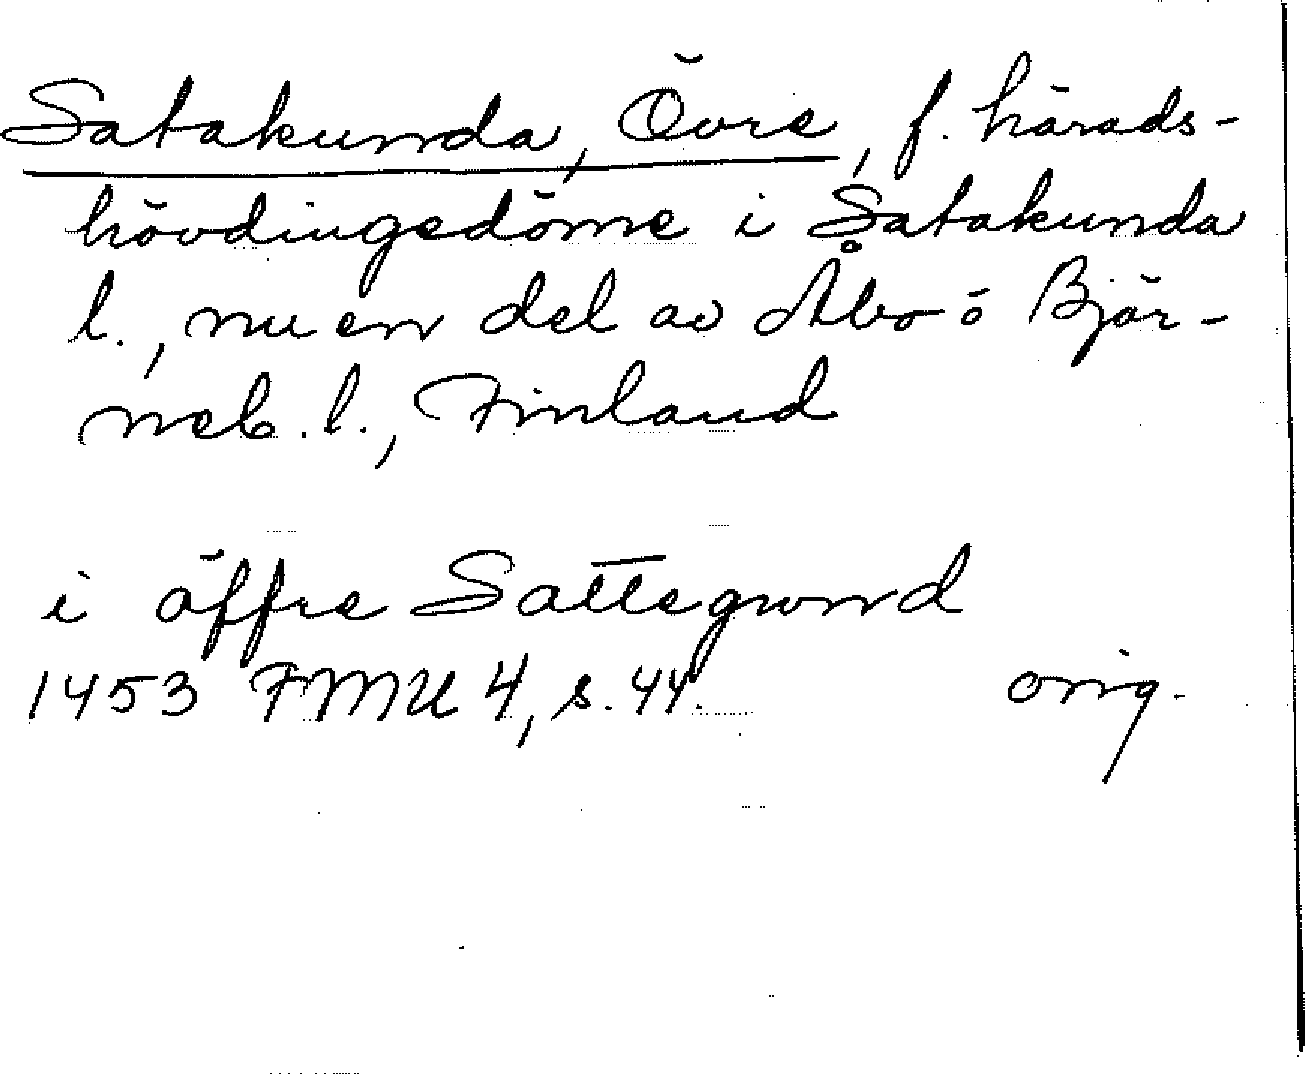 Satakunda, Övre, f. härads-
hövdingedöme i Satakunda
l., nu en del av Åbo o Björ-
neb. l., Finland
i öffre Sattegwnd
1453 FMU 4, s. 44. orig.